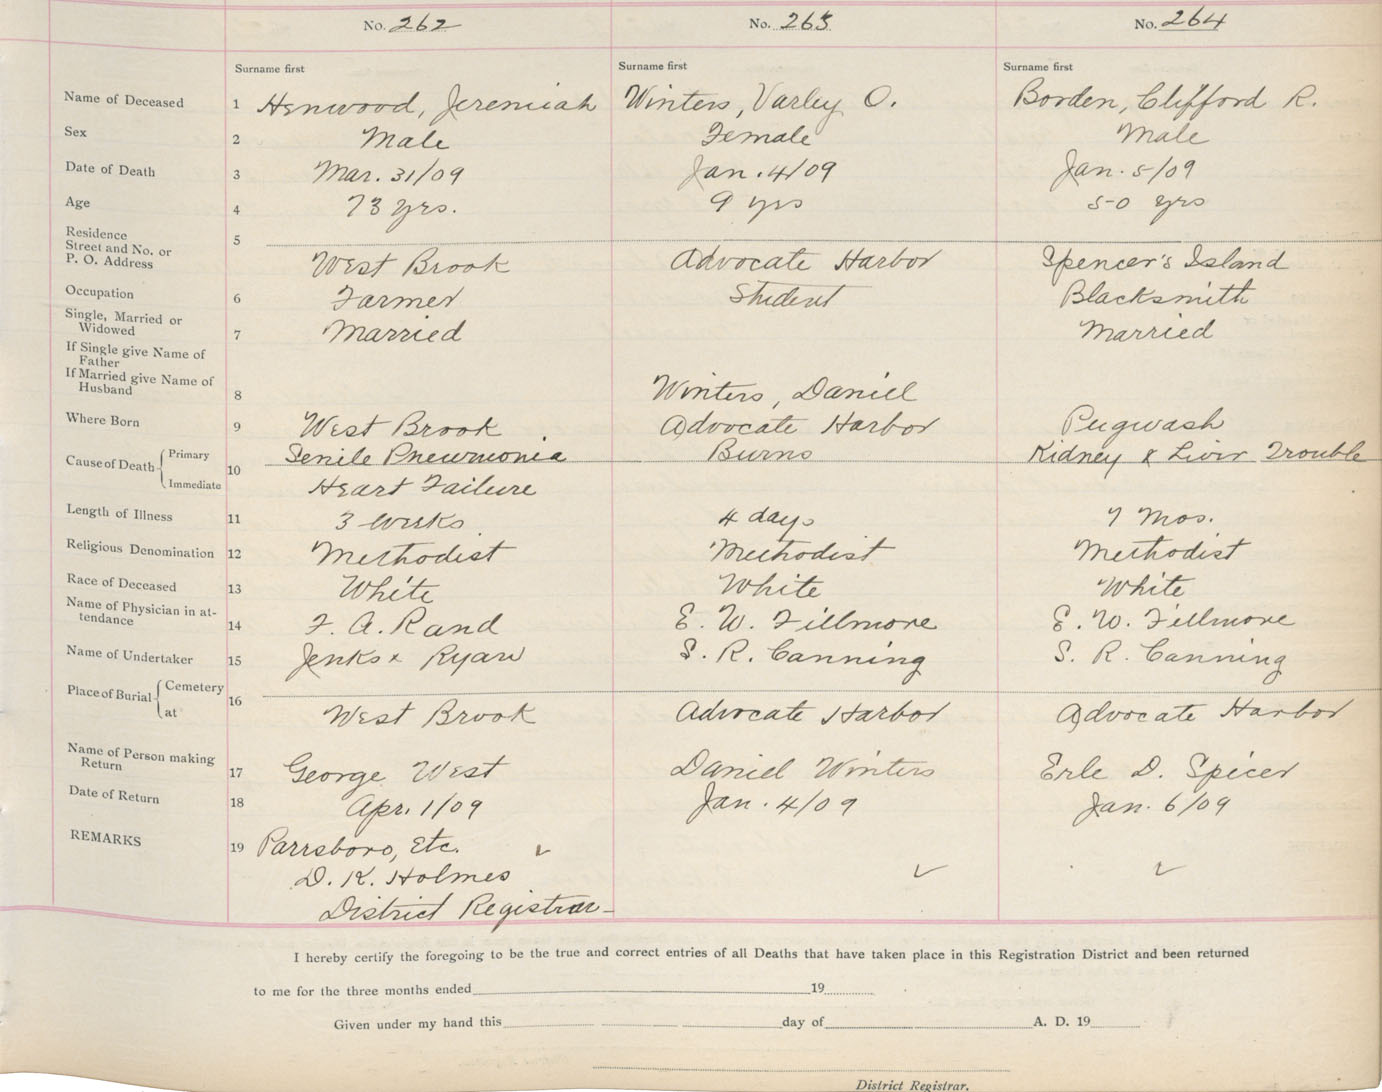 No. 262 No. 263 No. 264
Surname first Surname first Surname first
Name of Deceased 1 Henwood, Jeremiah Winters, Varley O. Borden, Clifford R.
Sex 2 Male Female Male
Date of Death 3 Mar. 31/09 Jan. 4/09 Jan. 5/09
Age 4 73 yrs. 9 yrs 50 yrs
Residence
Street and No. or 5
P. O. Address West Brook Advocate Harbor Spencer's Island
Occupation 6 Farmer Student Blacksmith
Single, Married or
Widowed 7 Married Married
If Single give Name of
Father
If Married give Name of
Husband 8 Winters, Daniel
Where Born 9 West Brook Advocate Harbor Pugwash
Cause of Death Primary 10 Senile Pneumonia Burns Kidney & Liver Trouble
Immediate Heart Failure
Length of Illness 11 3 weeks 4 days 7 Mos.
Religious Denomination 12 Methodist Methodist Methodist
Race of Deceased 13 White White White
Name of Physician in at-
tendance 14 F. A. Rand E. W. Fillmore E. W. Fillmore
Name of Undertaker 15 Jenks & Ryan S. R. Canning S. R. Canning
Place of Burial Cemetery 16
at West Brook Advocate Harbor Advocate Harbor
Name of Person making
Return 17 George West Daniel Winters Erle D. Spicer
Date of Return 18 Apr. 1/09 Jan. 4/09 Jan. 6/09
REMARKS 19 Parrsboro, Etc. ✓
D. K. Holmes ✓ ✓
District Registrar
I hereby certify the foregoing to be the true and correct entries of all Deaths that have taken place in this Registration District and been returned
to me for the three months ended 19
Given under my hand this day of A. D. 19
District Registrar.